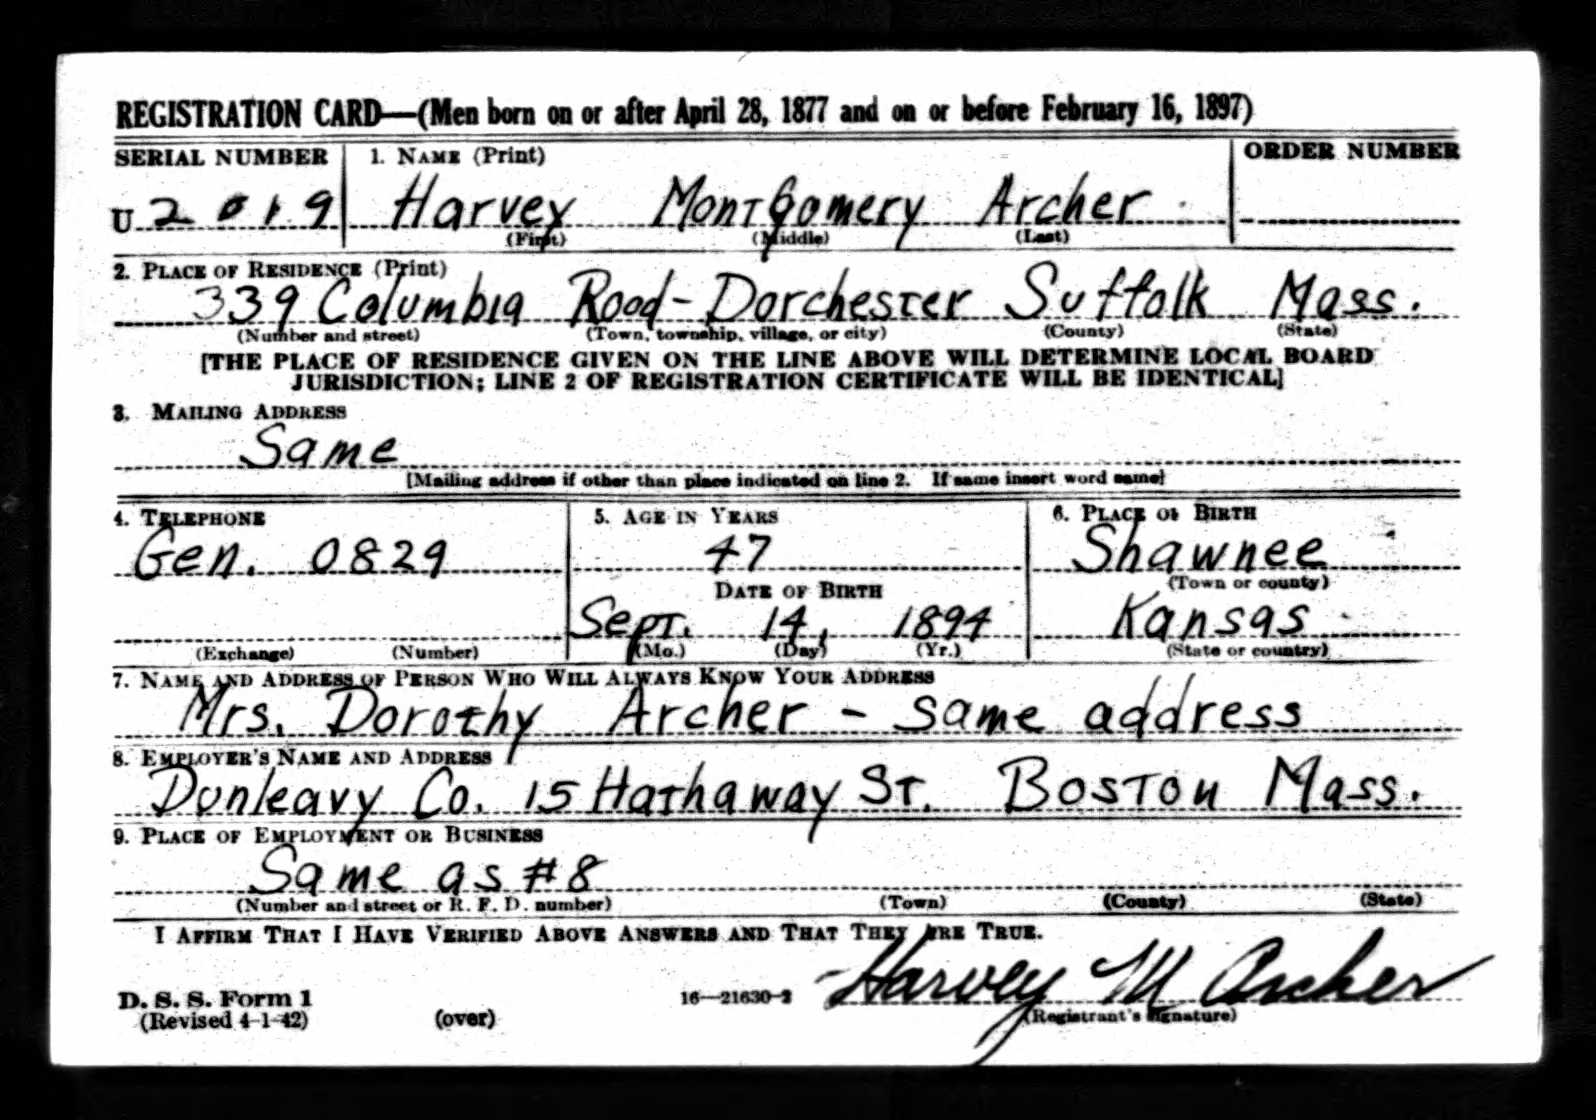 REGISTRATION CARD—(Men born on or after April 28, 1877 and on or before February 16, 1897)
SERIAL NUMBER 1. NAME (Print) ORDER NUMBER
U 2019 Harvey Montgomery Archer
(First) (Middle) (Last)
2. PLACE OF RESIDENCE (Print)
339 Columbia Road - Dorchester Suffolk Mass.
(Number and street) (Town, township, village, or city) (County) (State)
[THE PLACE OF RESIDENCE GIVEN ON THE LINE ABOVE WILL DETERMINE LOCAL BOARD
JURISDICTION; LINE 2 OF REGISTRATION CERTIFICATE WILL BE IDENTICAL]
3. MAILING ADDRESS
Same
[Mailing address if other than place indicated on line 2. If same insert word same]
4. TELEPHONE 5. AGE IN YEARS 6. PLACE OF BIRTH
Gen. 0829 47 Shawnee
DATE OF BIRTH (Town or county)
Sept. 14, 1894 Kansas
(Exchange) (Number) (Mo.) (Day) (Yr.) (State or country)
7. NAME AND ADDRESS OF PERSON WHO WILL ALWAYS KNOW YOUR ADDRESS
Mrs. Dorothy Archer - same address
8. EMPLOYER'S NAME AND ADDRESS
Dunleavy Co. 15 Hathaway St. Boston Mass.
9. PLACE OF EMPLOYMENT OR BUSINESS
Same as #8
(Number and street or R. F. D. number) (Town) (County) (State)
I AFFIRM THAT I HAVE VERIFIED ABOVE ANSWERS AND THAT THEY ARE TRUE.
D. S. S. Form 1 16—21630-2 Harvey M Archer
(Revised 4-1-42) (over) (Registrant's signature)